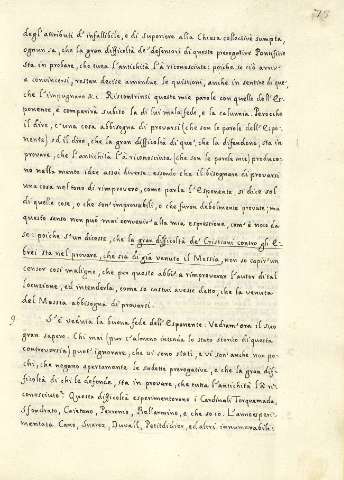 715
degl'attributi d'infallibile, e di superiore alla Chiesa collettive sumpta,
ognun sa, che la gran difficoltà de' defensori di queste prerogative Pontificie
sta in probare, che tutta l'antichità l'à riconosciute: poiche se ciò arriva
a convincersi, restan decise amendue le quistioni, anche in sentire di que',
che l'impugnano &c. Riscontrinsi queste mie parole con quelle dell'Es-
ponente, e comparirà subito la di lui mala fede, e la calunnia. Peroche
il dire, e' una cosa abbisogna di provarsi (che son le parole dell'Espo-
nente) ed il dire, che la gran difficoltà di que', che la difendono, sta in
provare, che l'antichità l'à riconosciuta (che son le parole mie) produco-
no nella mente idee assai diverse. essendo che il bisognare di provarsi
una cosa nel tono di rimprovero, come parla l'Esponente, si dice sol
di quelle cose, o che son' improbabili, o che furon debolmente provate; ma
questo senso non può mai convenir' alla mia espressione, com' è noto da
se: poiche s'un dicesse, che la gran difficoltà de' Cristiani contro gli E-
brei sta nel provare, che sia di già venuto il Messia, non so capir' un
censor così maligno, che per questo abbi' a rimproverar l'autor di tal
locuzione, ed intenderla, come se costui avesse detto, che la venuta
del Messia abbisogna di provarsi.
9 S'è veduta la buona fede dell'Esponente: Vediam' ora il suo
gran sapere. Chi mai (pur c'almeno sappia lo stato storico di questa
controversia) puot' ignorare, che vi sono stati, e vi son' anche non po-
chi, che negano apertamente le sudette prerogative, e che la gran dif-
ficoltà di chi le defende, sta in provare, che tutta l'antichità l'à ri-
conosciute? Questa difficoltà esperimentorono i Cardinali Torquemada,
Sfondrato, Caietano, Perronio, Bellarmino, e che so io. L'anno esperi-
mentata Cano, Suarez, Duvall, Petitdidier, ed altri innumerabili: